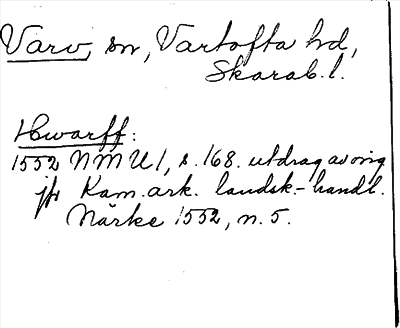 Varv, sn, Vartofta hd,
Skarab. l.
Hwarff:
1552 NMU1, s. 168. utdrag av orig
jfr Kam. ark. landsk.-handl.
Närke 1552, n. 5.